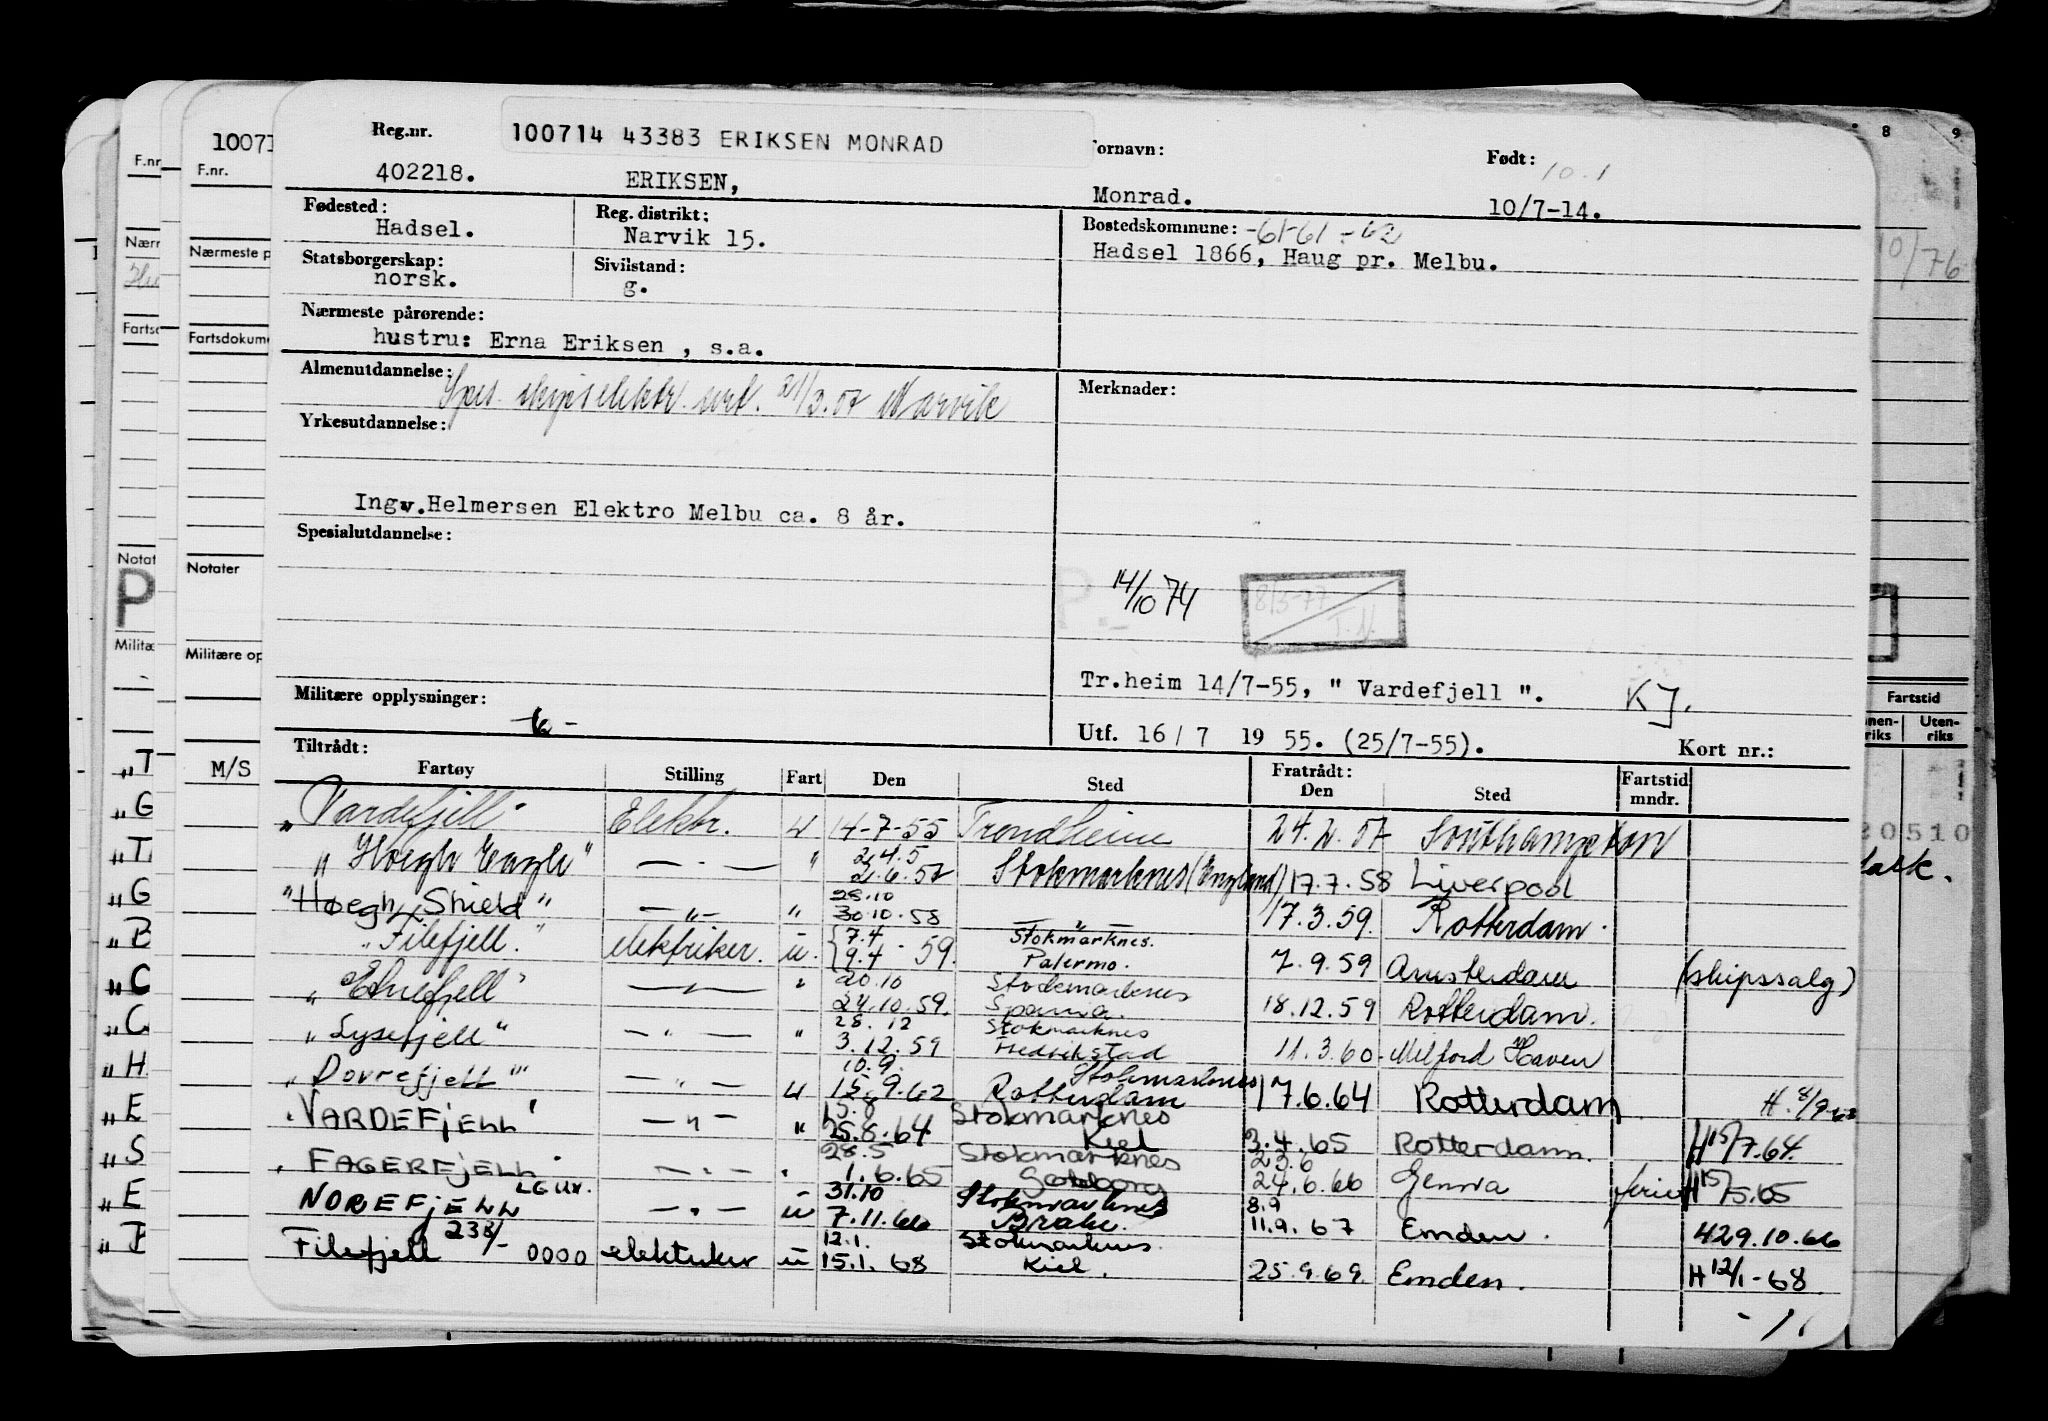 Reg.nr. 100714 43383 ERIKSEN MONRAD Fornavn: Født: 10.1
402218. ERIKSEN, Monrad. 10/7-14.
Fødested: Reg. distrikt: Bostedskommune: -61-61-62
Hadsel. Narvik 15. Hadsel 1866, Haug pr. Melbu.
Statsborgerskap: Sivilstand:
norsk. g.
Nærmeste pårørende:
hustru: Erna Eriksen , s.a.
Almenutdannelse: Spes. skipselektr. sert. 21/3.57 Narvik Merknader:
Yrkesutdannelse:
Ingv.Helmersen Elektro Melbu ca. 8 år.
Spesialutdannelse:
14/10 74 8/3-77
Tr.heim 14/7-55, " Vardefjell ". KJ.
Militære opplysninger:
Utf. 16/ 7 19 55. (25/7-55). Kort nr.:
Tiltrådt: Fratrådt:
Fartøy Stilling Fart Den Sted Den Sted Fartstid mndr.
" Vardefjell" Elektr. u 14-7-55 Trondheim 24.2.57 Southampton
" Høegh Eagle" — . — " 24.5 2.6.57 Stokmarknes (England) 17.7.58 Liverpool
"Høegh Shield" — " — " 28.10 30.10.58 — " — 17.3.59. Rotterdam.
"Filefjell." elektriker. u. 7.4 9.4 - 59. Stokmarknes. Palermo. 7.9.59 Amsterdam (skipssalg)
" Etnefjell" — " — " 20.10 24.10.59. Stokmarknes 18.12.59 Rotterdam.
" Lysefjell" — " — " 28.12 3.12.59 Stokmarknes Fredrikstad 11.3.60- Milford Haven
" Dovrefjell" — " — u 10.9. 15.9.62 Stokmarknes Rotterdam 17.6.64 Rotterdam H.
"VARDEFJELL" — " — " 15.8 25.8.64 Stokmarknes Kiel 3.4.65 Rotterdam. H15/7.64.
" FAGERFJELL" — " — " 28.5 1.6.65 Stokmarknes Gøteborg 23.6 24.6.66 Genova ferie H15/5.65
NOREFJELL LGUX. — " — u 31.10 7.11.66 Stokmarknes Brake. 8.9 11.9.67 Emden. 29.10.66
Filefjell 238/- 0000 elektriker u 12.1. 15.1.68 Stokmarknes. Kiel. 25.9.69. Emden. H 12/1-68
10071
F.nr.
Nærmeste p
Fartsdokume
Notater
Militære op
M/S
F.nr
Nærm
Fartsd
Notat
P
Militæ
"T
"G
"T
"G
"B
"C
"C
"H
"E
"S
"E
8 9
10/76
Fartstid
Uten-
riks
510